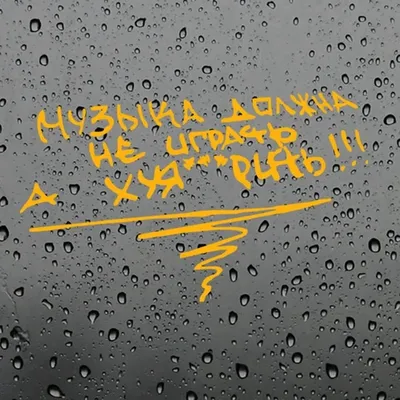 МУЗЫКА ДОЛЖНА
НЕ ИГРАТЬ
А ХУЯ***РИТЬ!!!